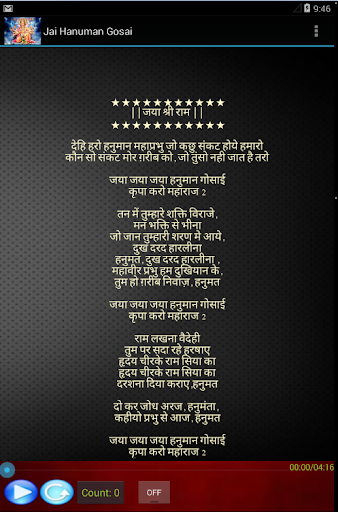 9:46
Jai Hanuman Gosai
★★★★★★★★★★★
||जया श्री राम ||
★★★★★★★★★★★
देहि हरो हनुमान महाप्रभु जो कछु संकट होये हमारो
कौन सो संकट मोर ग़रीब को , जो तुंसो नही जात है तरो
जया जया जया हनुमान गोसाई
कृपा करो महाराज 2
तन में तुम्हारे शक्ति विराजे ,
मन भक्ति से भीना
जो जान तुम्हारी शरण मे आये ,
दुख दरद हारलीना
हनुमत , दुख दरद हारलीना ,
महावीर प्रभु हम दुखियान के ,
तुम हो ग़रीब निवाज़ , हनुमत
जया जया जया हनुमान गोसाई
कृपा करो महाराज 2
राम लखना वैदेही
तुम पर सदा रहे हरषाए
हृदय चीरके राम सिया का
हृदय चीरके राम सिया का
दरशना दिया कराए ,हनुमत
दो कर जोध अरज , हनुमंता ,
कहीयो प्रभु से आज , हनुमत
जया जया जया हनुमान गोसाई
कृपा करो महाराज 2
00:00/04:16
Count: 0
OFF